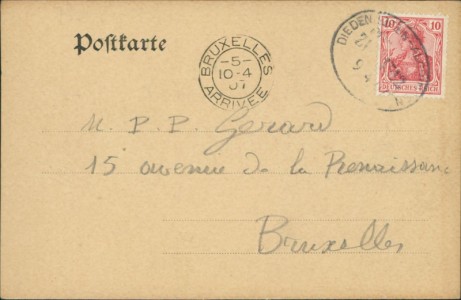 Postkarte
BRUXELLES
-5-
10-4
07
ARRIVÉE
DIEDEN
10 10
DEUTSCHES REICH
M. P. P. Gerard
15 avenue de la Renaissance
Bruxelles